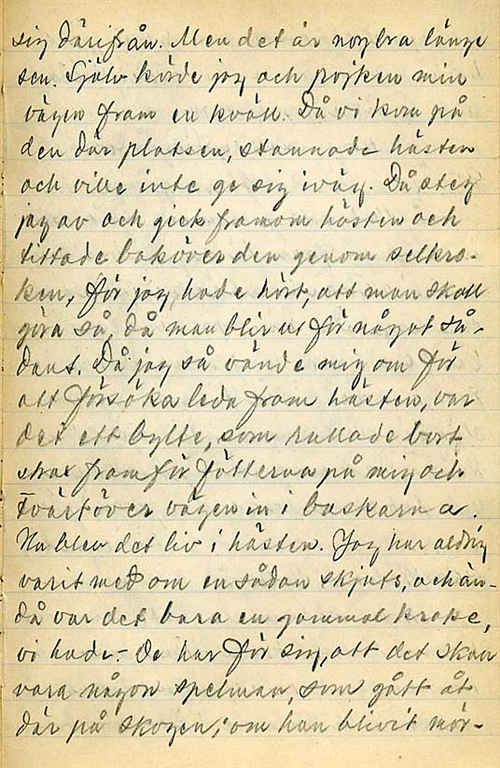 sig därifrån. Men det är nog bra länge
sen. Själv körde jag och pojken min
vägen fram en kväll. Då vi kom på
den där platsen, stannade hästen
och ville inte ge sig iväg. Då steg
jag av och gick framom hästen och
tittade baköver den genom selkro-
ken, för jag hade hört, att man skall
göra så, då man blir ut för något så-
dant. Då jag så vände mig om för
att försöka leda fram hästen, var
det ett bylte, som rullade bort
strax framför fötterna på mig och
tvärtöver vägen in i buskarna.
Nu blev det liv i hästen. Jag har aldrig
varit med om en sådan skjuts, och än-
då var det bara en gammal krake,
vi hade. - De har för sig, att det skall
vara någon spelman, som gått åt
där på skogen; om han blivit mör-